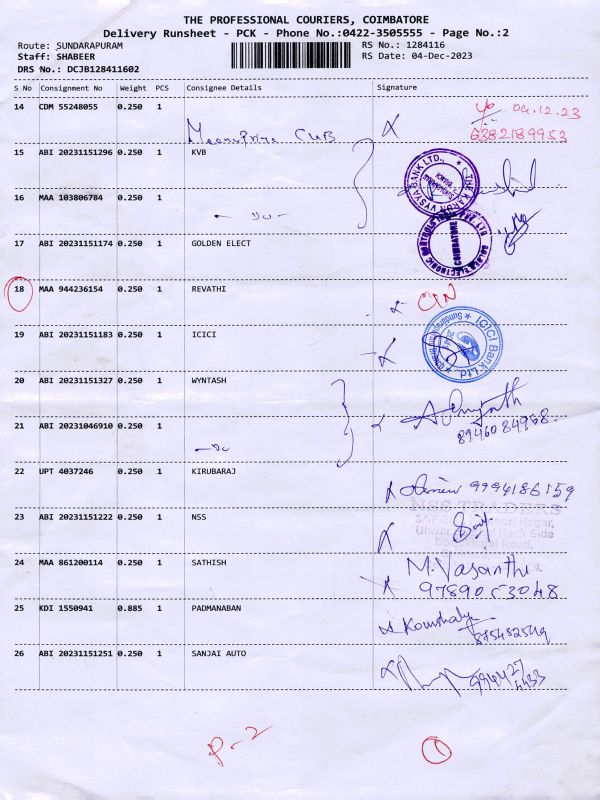 THE PROFESSIONAL COURIERS, COIMBATORE
Delivery Runsheet - PCK - Phone No.:0422-3505555 - Page No.:2
Route: SUNDARAPURAM
RS No.: 1284116
Staff: SHABEER
RS Date: 04-Dec-2023
DRS No.: DCJB128411602
S No Consignment No Weight PCS Consignee Details Signature
14 CDM 55248055 0.250 1 CUB 04.12.23
6382189953
15 ABI 20231151296 0.250 1 KVB
THE KARUR VYSYA BANK LTD.,
16 MAA 103806784 0.250 1 - Do -
17 ABI 20231151174 0.250 1 GOLDEN ELECT
COIMBATORE
18 MAA 944236154 0.250 1 REVATHI
19 ABI 20231151183 0.250 1 ICICI
ICICI Bank Ltd.
20 ABI 20231151327 0.250 1 WYNTASH
21 ABI 20231046910 0.250 1 - Do 8946084968.
22 UPT 4037246 0.250 1 KIRUBARAJ 9994186159
NSS TRADERS
23 ABI 20231151222 0.250 1 NSS
24 MAA 861200114 0.250 1 SATHISH M. Vasanthi
9789053048
25 KDI 1550941 0.885 1 PADMANABAN
26 ABI 20231151251 0.250 1 SANJAI AUTO
P-2 1